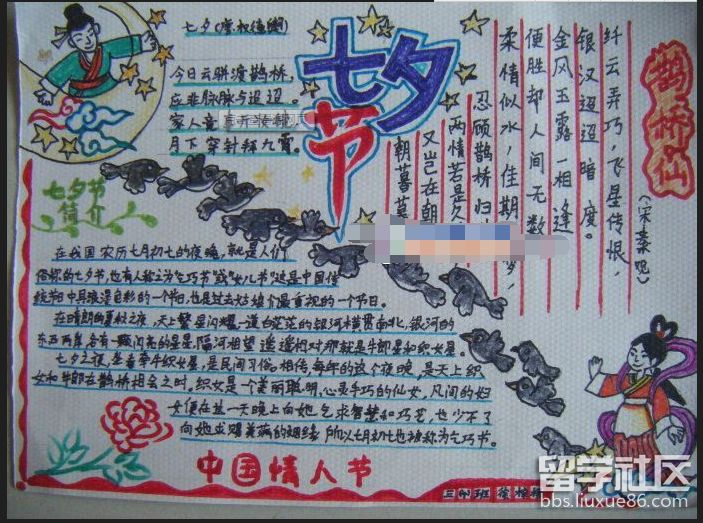 七夕(唐·权德舆)
今日云骈渡鹊桥，
应非脉脉与迢迢。
家人竟
月下穿针拜九霄。
七夕节
鹊桥仙
(宋秦观)
纤云弄巧，飞星传恨，
银汉迢迢暗度。
金风玉露一相逢
便胜却人间无数
柔情似水，佳期
梦，
忍顾鹊桥归
两情若是久
又岂在朝
朝暮暮
七夕节
简介
在我国农历七月初七的夜晚，就是人们
俗称的七夕节，也有人称之为"乞巧节"或"女儿节"这是中国传
统节日中具浪漫色彩的一个节日，也是过去姑娘们最重视的一个节日。
在晴朗的夏秋之夜，天上繁星闪耀一道白茫茫的银河横贯南北，银河的
东西两岸，各有一颗闪亮的星星，隔河相望 遥遥相对那就是牛郎星和织女星。
七夕之夜，坐看牵牛织女星，是民间习俗。相传，每年的这个夜晚，是天上织
女和牛郎在鹊桥相会之时。织女是一个美丽聪明，心灵手巧的仙女，凡间的妇
女便在这一天晚上向她乞求智慧和巧艺，也少不了
向她求赐美满的姻缘 所以七月初七也被称为乞巧节。
中国情人节
留学社区
bbs.liuxue86.com